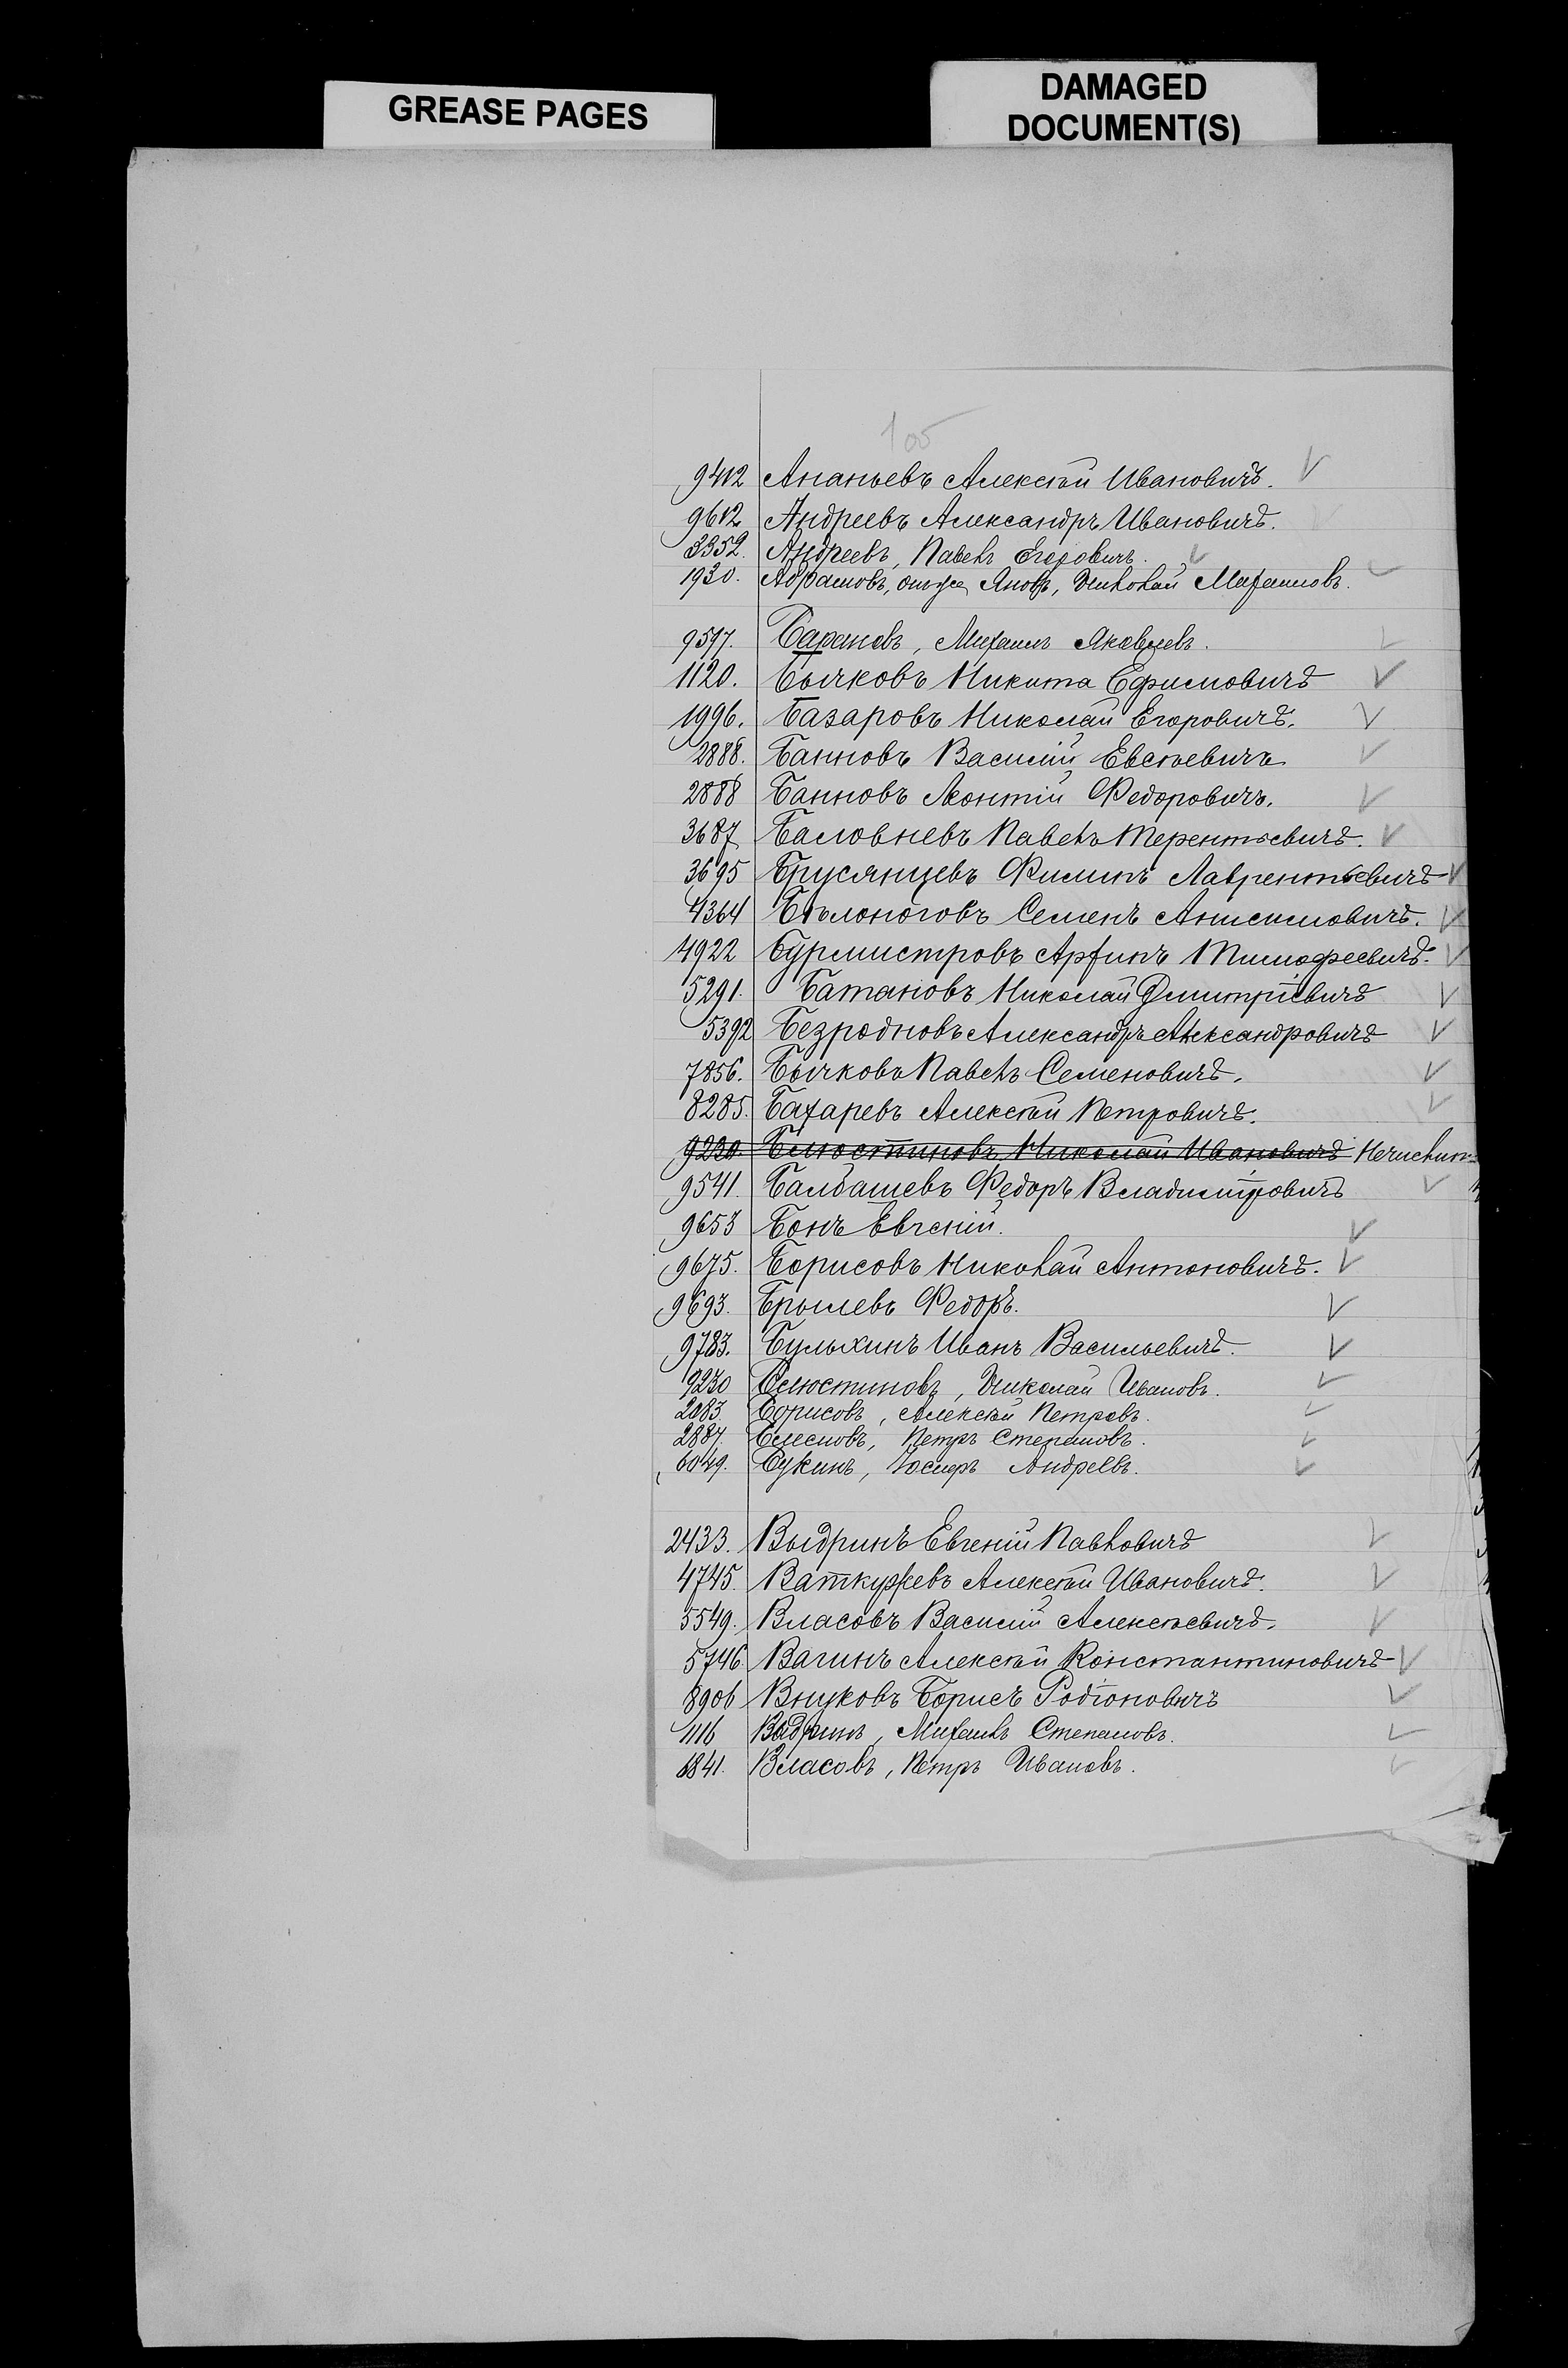 GREASE PAGES
DAMAGED
DOCUMENT(S)
105
9412 Ананьевъ Алексѣй Ивановичъ.
9612 Андреевъ Александръ Ивановичъ.
3352. Андреевъ, Павелъ Егоровичъ.
1930. Абрамовъ, онъ же Яновъ, Николай Михаиловъ.
9517. Барановъ, Михаилъ Яковлевъ.
1120. Бычковъ Никита Ефимовичъ
1996. Базаровъ Николай Егоровичъ.
2888. Банновъ Василій Евсѣевичъ
2888 Банновъ Леонтій Федоровичъ.
3687 Баловневъ Павелъ Терентьевичъ.
3695 Брусянцевъ Филипъ Лаврентьевичъ
4364 Бѣлоноговъ Семенъ Анисимовичъ.
4922 Бурмистровъ Архипъ Тимофеевичъ.
5291. Батановъ Николай Дмитріевичъ
5392 Безродновъ Александръ Александровичъ
7856. Бычковъ Павелъ Семеновичъ.
8285. Бахаревъ Алексѣй Петровичъ.
9230. Белюстиновъ Николай Ивановичъ
9541. Балбашевъ Федоръ Владиміровичъ
9653 Бонъ Евгеній.
9675. Борисовъ Николай Антоновичъ.
9693. Брылевъ Федоръ.
9783. Булыхинъ Иванъ Васильевичъ.
9230 Белюстиновъ, Николай Ивановъ.
2083. Борисовъ, Алексѣй Петровъ.
2887. Петръ Степановъ.
6049. Букинъ, Андреевъ.
2433. Выдринъ Евгеній Павловичъ
4745. Алексѣй Ивановичъ.
5549. Власовъ Василій Алексѣевичъ.
5746. Вагинъ Алексѣй Константиновичъ
8906 Внуковъ Борисъ Родіоновичъ
1116 Выдринъ, Михаилъ Степановъ.
6841. Власовъ, Петръ Ивановъ.